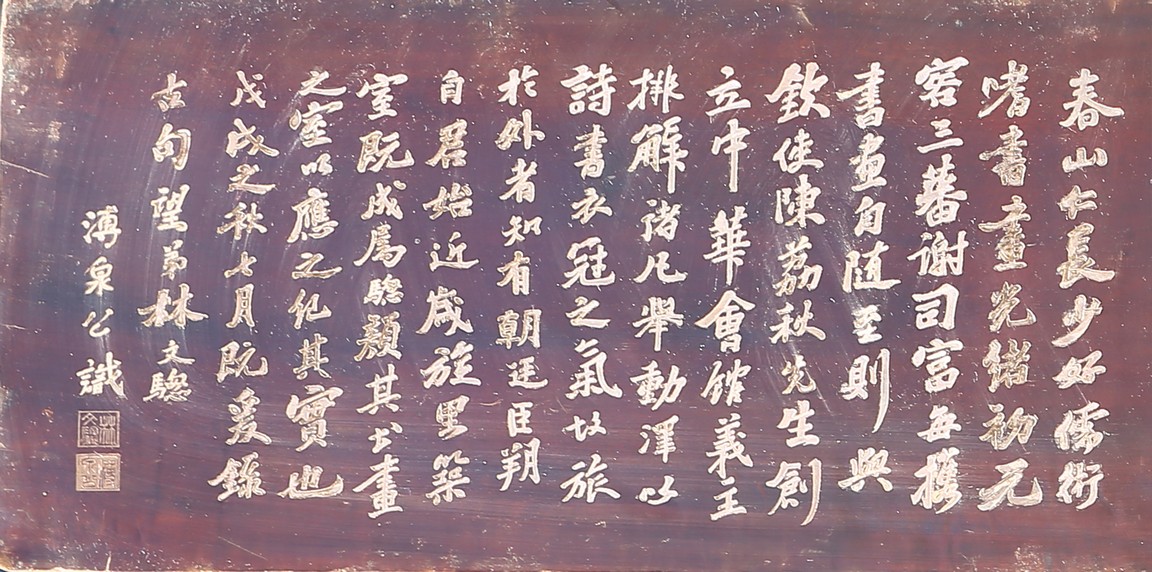 春山仁長少好儒術
嗜書畫光緒初元
客三藩謝司富每攜
書畫自隨至則與
欽使陳荔秋先生創
立中華會館義主
排解諸凡舉動渾以
詩書衣冠之氣故旅
於外者知有朝廷臣朔
自君始近歲旋里築
室既成屬驄顏其書畫
之室以應之紀其實也
戊戌之秋七月既望錄
古句望弟林文驄
溥泉公識